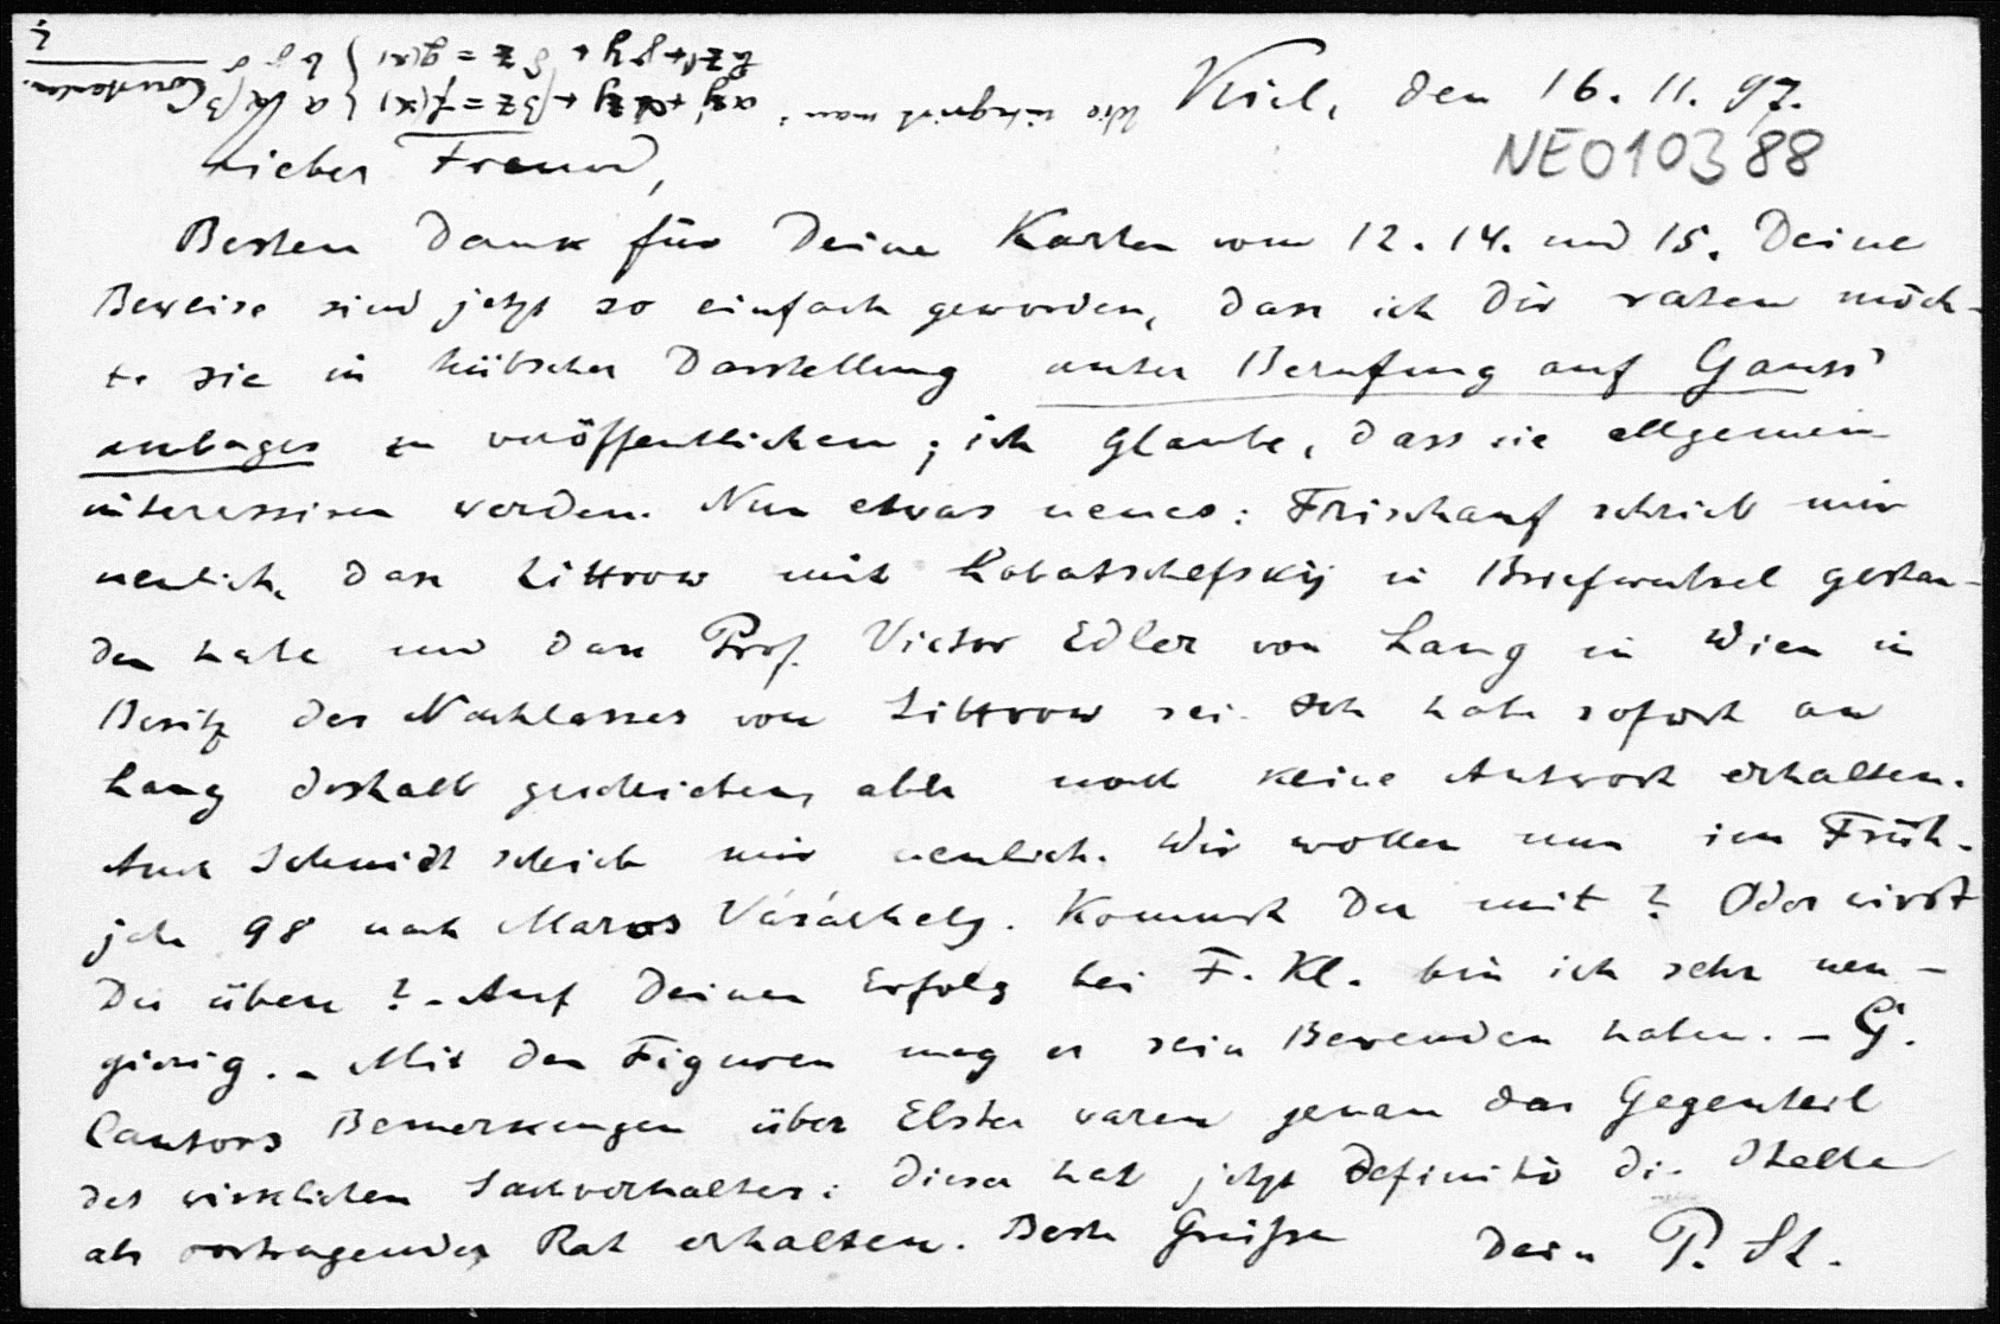 Kiel, den 16. 11. 97.
NE010388
Lieber Freund,
Besten Dank für Deine Karten vom 12. 14. und 15. Deine
Beweise sind jetzt so einfach geworden, dass ich Dir raten möch-
te sie in hübscher Darstellung unter Berufung auf Gauss'
zu veröffentlichen; ich glaube, dass sie allgemein
interessiren werden. Nun etwas neues: Frischauf schrieb mir
neulich, dass Littrow mit Lobatschefskij in Briefwechsel gestan-
den habe und dass Prof. Victor Edler von Lang in Wien in
Besitz des Nachlasses von Littrow sei. Ich habe sofort an
Lang deshalb geschrieben, aber noch keine Antwort erhalten.
Auch Schmidt schrieb mir neulich. Wir wollen nun im Früh-
jahr 98 nach Maros Vásárhely. Kommst Du mit? Oder wirst
Du üben? - Auf Deinen Erfolg bei F. Kl. bin ich sehr neu-
gierig. - Mit den Figuren mag es sein Bewenden haben. - G.
Cantors Bemerkungen über Elster waren genau das Gegenteil
des wirklichen Sachverhaltes: dieser hat jetzt definitiv die Stelle
als vortragender Rat erhalten. Beste Grüsse Dein P. St.
Wie integrirt man:
Constanten.
?